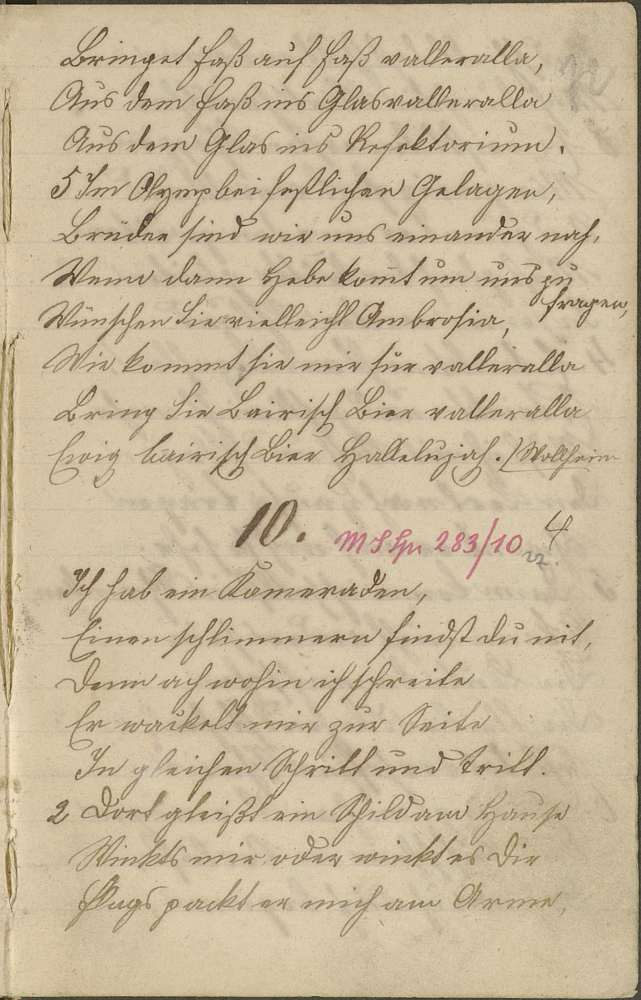 Bringet Faß auf Faß valleralla,
Aus dem Faß ins Glas valleralla
Aus dem Glas ins Refektorium.
5 Im Olymp bei festlichen Gelagen,
Brüder sind wir uns einander nah,
Wenn dann Hebe kom̄t um uns zu
fragen,
Wünschen Sie vielleicht Ambrosia,
Wie kommt sie mir für valleralla
Bring Sie Bairisch Bier valleralla
Ewig bairisch Bier Hallelujah. /Wollheim
10.
4
283/10
27.
Ich hab ein Kameraden,
Einen schlimmern findst du nit,
Denn ach wohin ich schreite
Er wackelt mir zur Seite
In gleichen Schritt und Tritt.
2 Dort gleißt ein Schild am Hause
Winkts mir oder winkt es Dir
Flugs packt er mich am Arme,